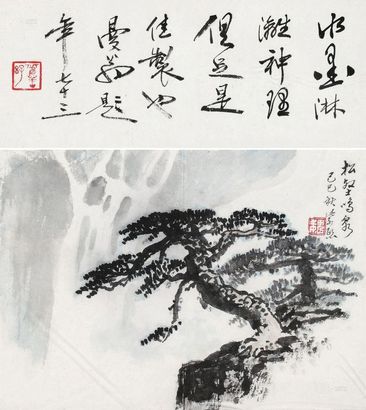 水墨淋
漓神理
俱足是
佳製也
曼翁題
年七十三
松壑鳴泉
己巳秋